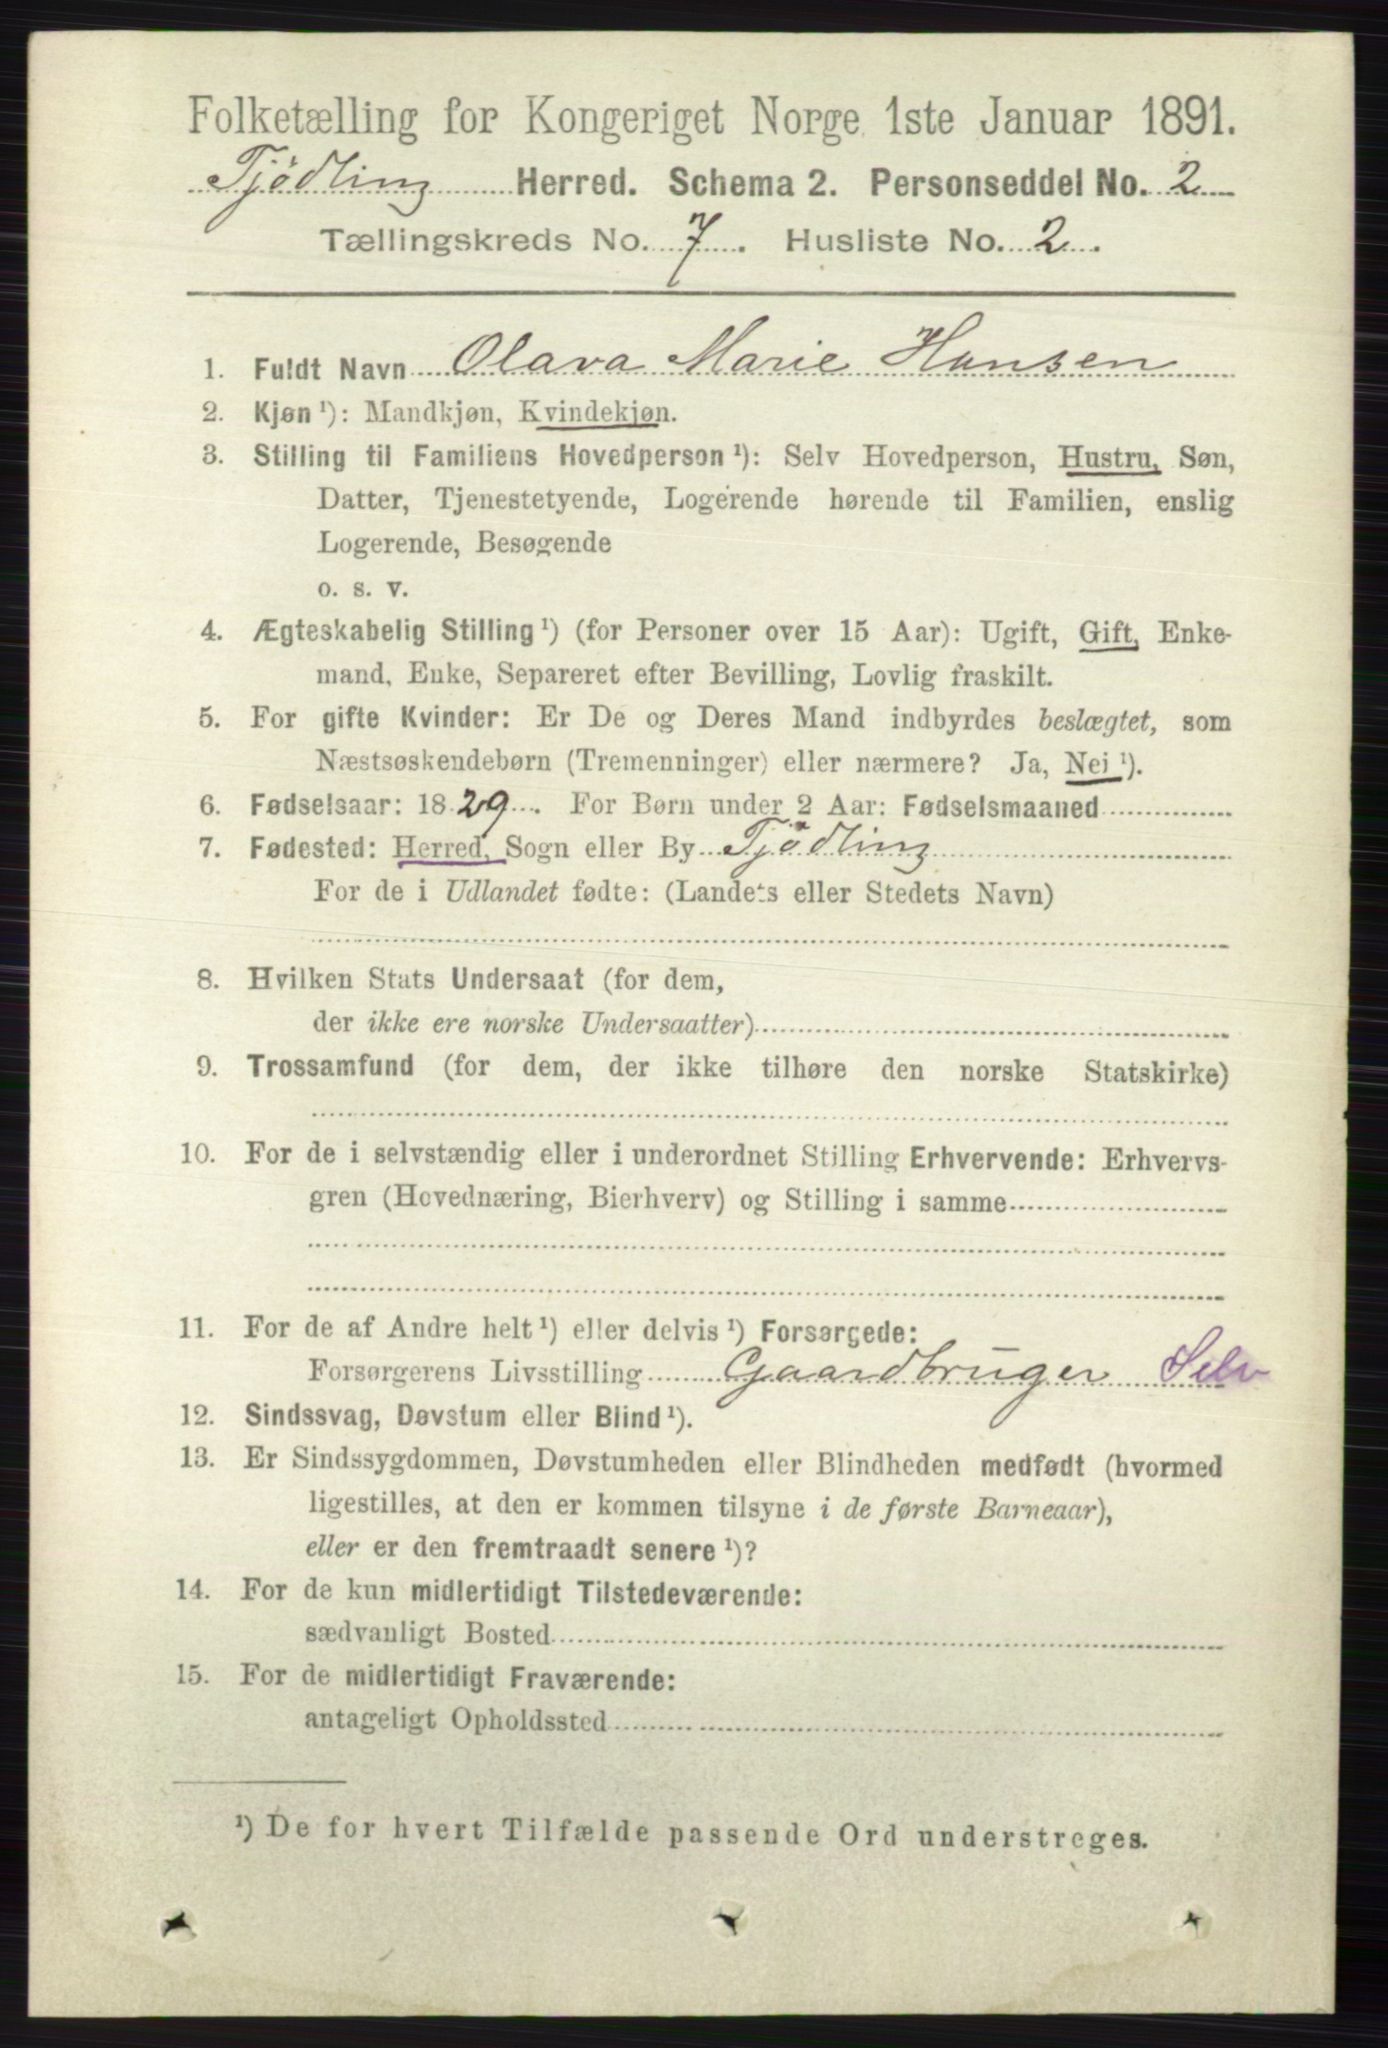 Folketælling for Kongeriget Norge 1ste Januar 1891.
Tjødling Herred. Schema 2. Personseddel No. 2
Tællingskreds No. 7. Husliste No. 2.
1. Fuldt Navn Olava Marie Hansen
2. Kjøn ¹): Mandkjøn, Kvindekjøn.
3. Stilling til Familiens Hovedperson ¹): Selv Hovedperson, Hustru, Søn,
Datter, Tjenestetyende, Logerende hørende til Familien, enslig
Logerende, Besøgende
o. s. v.
4. Ægteskabelig Stilling ¹) (for Personer over 15 Aar): Ugift, Gift, Enke-
mand, Enke, Separeret efter Bevilling, Lovlig fraskilt.
5. For gifte Kvinder: Er De og Deres Mand indbyrdes beslægtet, som
Næstsøskendebørn (Tremenninger) eller nærmere? Ja, Nei ¹).
6. Fødselsaar: 1829. For Børn under 2 Aar: Fødselsmaaned
7. Fødested: Herred, Sogn eller By Tjödling
For de i Udlandet fødte: (Landets eller Stedets Navn)
8. Hvilken Stats Undersaat (for dem,
der ikke ere norske Undersaatter)
9. Trossamfund (for dem, der ikke tilhøre den norske Statskirke)
10. For de i selvstændig eller i underordnet Stilling Erhvervende: Erhvervs-
gren (Hovednæring, Bierhverv) og Stilling i samme
11. For de af Andre helt ¹) eller delvis ¹) Forsørgede:
Forsørgerens Livsstilling Gaardbruger Selv
12. Sindssvag, Døvstum eller Blind ¹).
13. Er Sindssygdommen, Døvstumheden eller Blindheden medfødt (hvormed
ligestilles, at den er kommen tilsyne i de første Barneaar),
eller er den fremtraadt senere ¹)?
14. For de kun midlertidigt Tilstedeværende:
sædvanligt Bosted
15. For de midlertidigt Fraværende:
antageligt Opholdssted
¹) De for hvert Tilfælde passende Ord understreges.